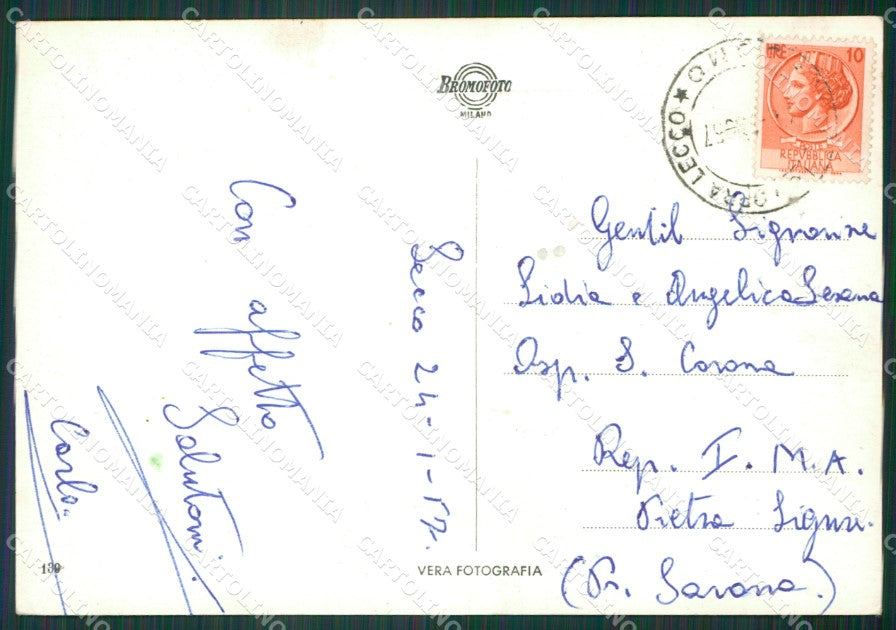 BROMOFOTO
MILANO
LIRE 10
REPVBBLICA
ITALIANA
LECCO
Con affetto
Salutoni
Carla
Lecco 24-1-57.
Gentil Signorine
Lidia e Angelica Sesana
Osp. S. Corona
Rep. I. M. A.
Pietra Ligure.
(Pr. Savona.)
139
VERA FOTOGRAFIA
CARTOLINOMANIA